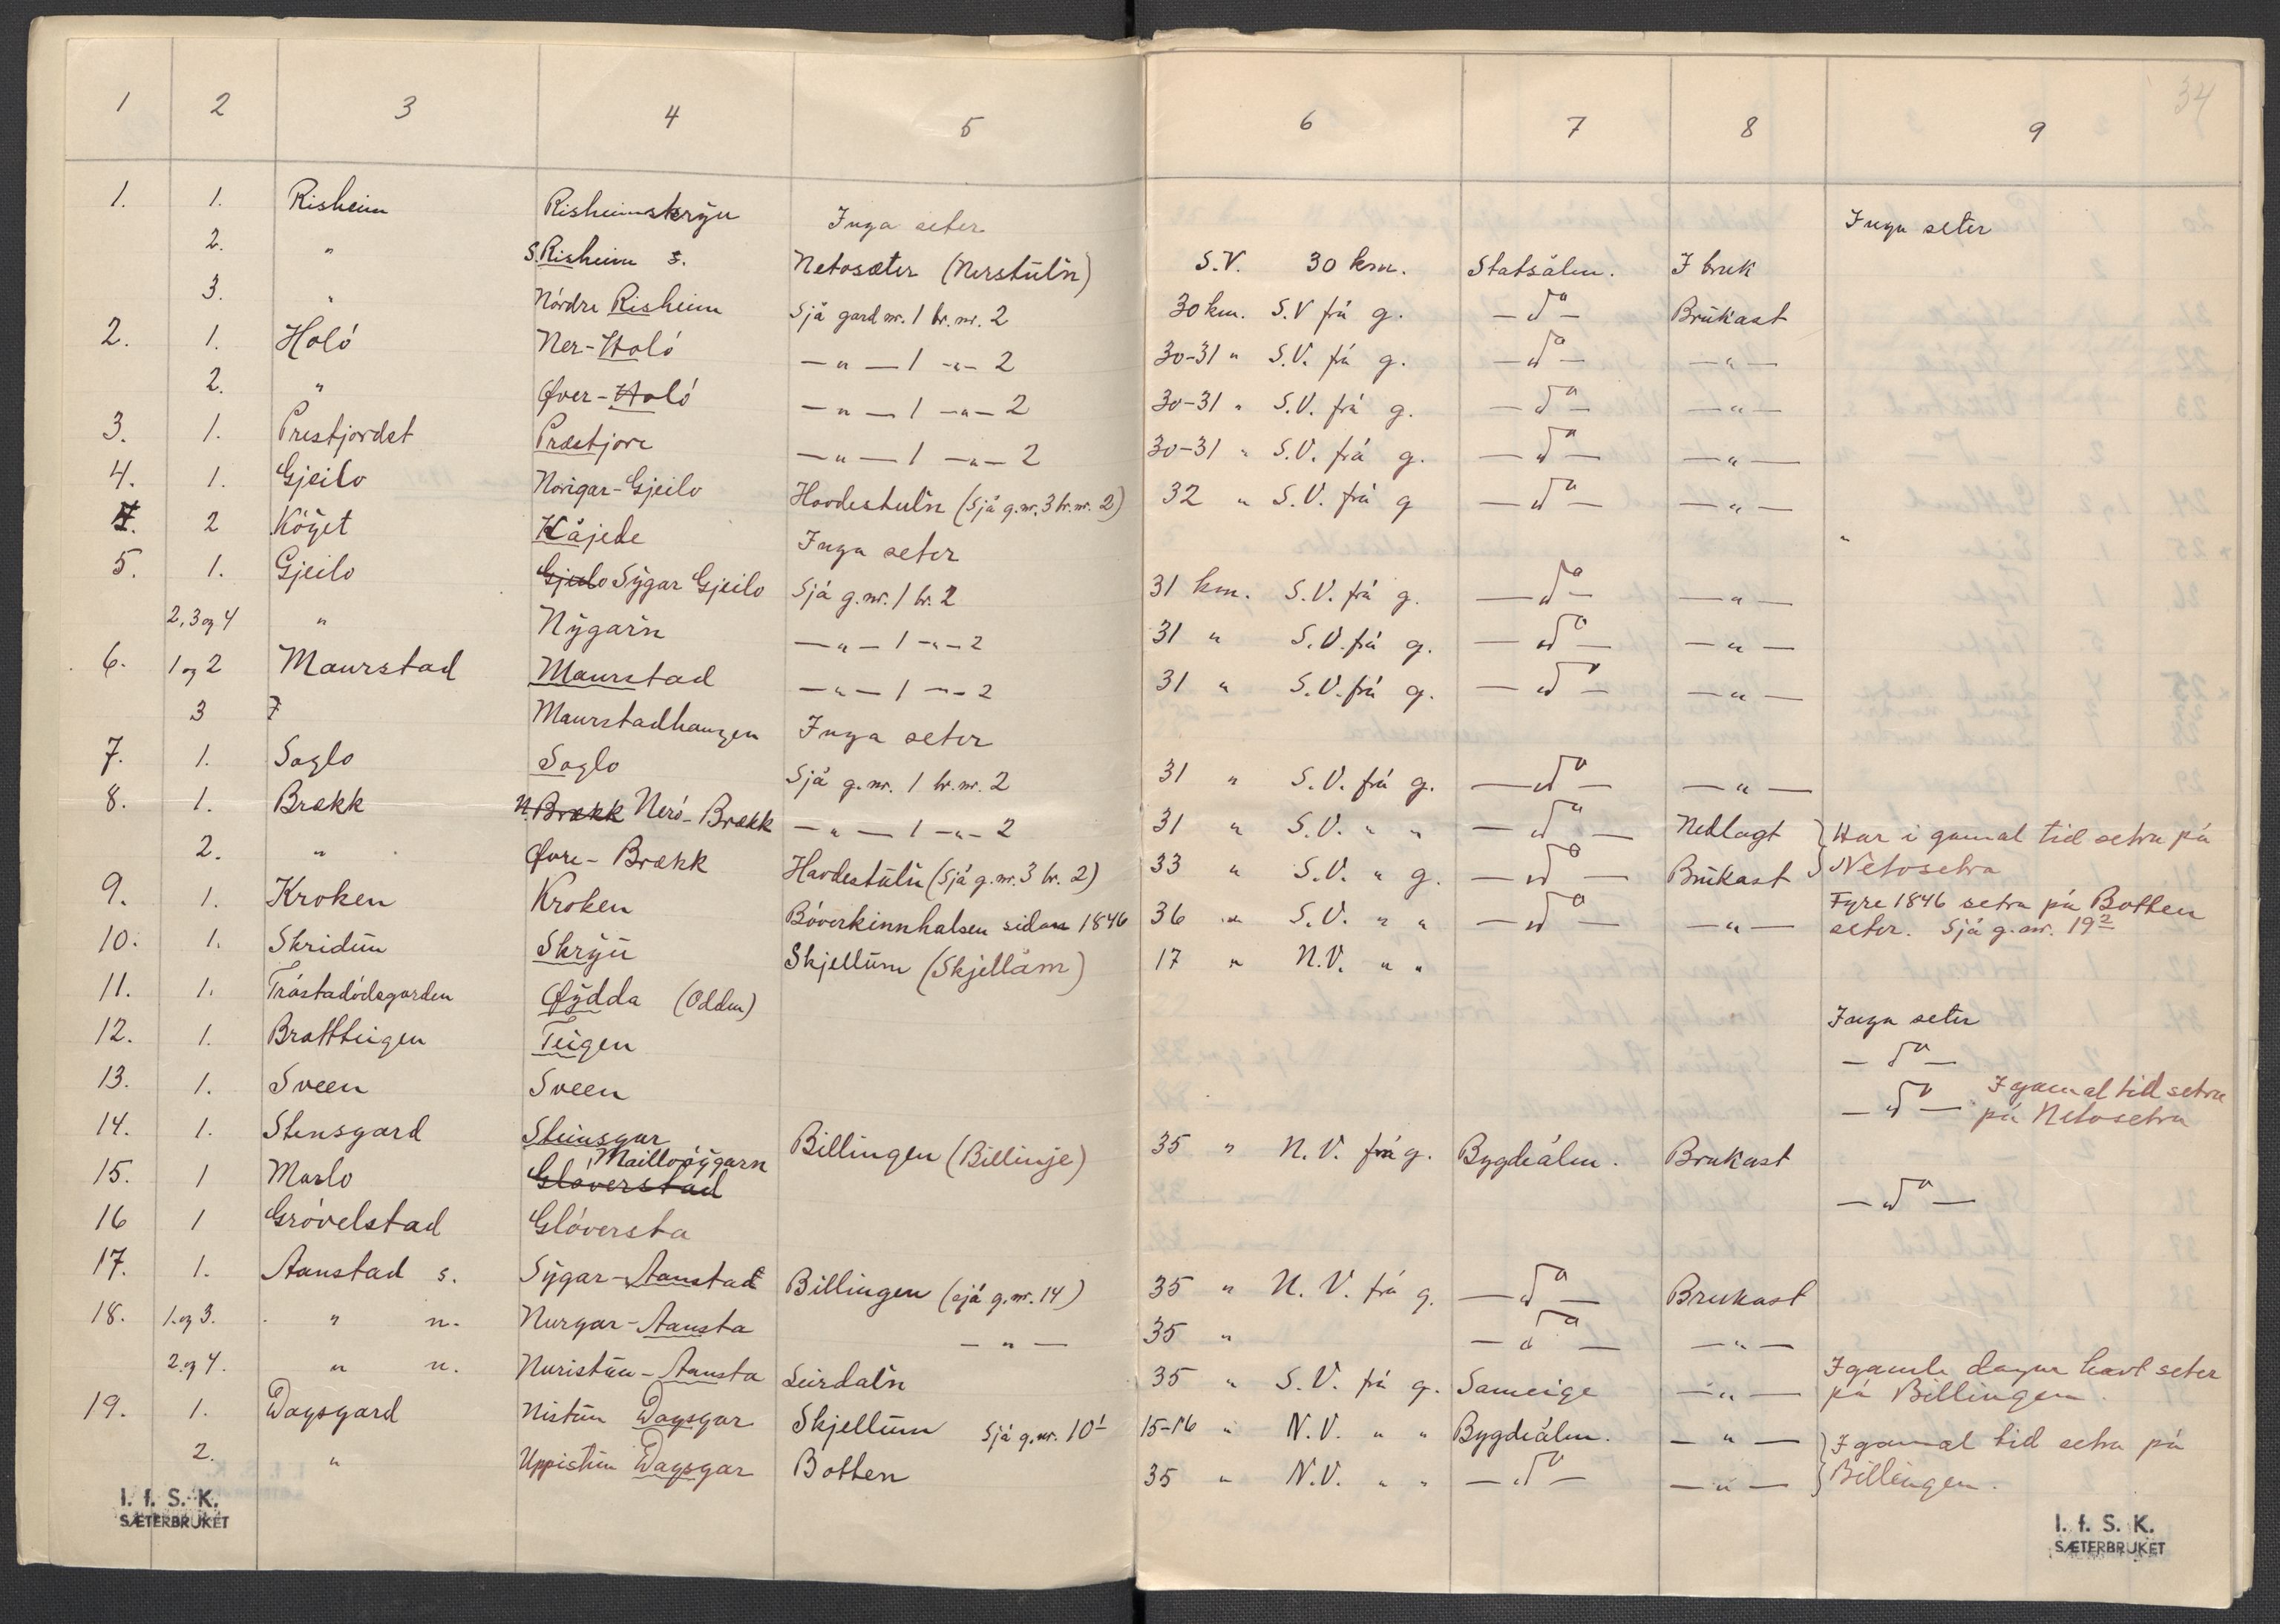 34
1 2 3 4 5 6 7 8 9
1. 1. Risheim Risheimskrÿu Inga seter Inga seter
2. " S. Risheim s. Netosæter (Nerstŭl'n) S.V. 30 km. Statsålm. I bruk
3. " Nórdre Risheim Sjå gard nr. 1 br. nr. 2 30 km. S.V frå g. — d° — Brŭkast
2. 1. Holó Ner-Holó — " — 1 — " — 2 30-31 " S.V. frå g. — d° — — " —
2. " Øver-Holó — " — 1 — " — 2 30-31 " S.V. frå g. — d° — — " —
3. 1. Prestjordet Præstjore — " — 1 — " — 2 30-31 " S.V. frå g. — d° — — " —
4. 1. Gjeilo Norigar-Gjeilo Hovdestul'n (Sjå g.nr. 3 br. nr. 2) 32 " S.V. frå g — d° — — " —
4. 2 Köyet Kåjede Inga seter "
5. 1. Gjeilo Gjeilo Sÿgar Gjeilo Sjå g.nr. 1 br. 2 31 km. S.V. frå g. — d° — — " —
2, 3 og 4 " Nÿgar'n — " — 1 — " — 2 31 " S.V. frå g. — d° — — " —
6. 1 og 2 Maurstad Maurstad — " — 1 — " — 2 31 " S.V. frå g. — d° — — " —
3 Maurstadhaugen Inga seter
7. 1. Soglo Soglo Sjå g.nr. 1 br. nr. 2 31 " S.V. frå g. — d° — — " —
8. 1. Brækk N. Brækk Neró-Brækk — " — 1 — " — 2 31 " S.V. " " — d° — Nedlagt } Har i gamal tid setra på
2. " Øvre-Brækk Havdestŭl'n (Sjå g.nr. 3 br. 2) 33 " S.V. " g. — d° — Brŭkast } Netosetra
9. 1. Kroken Kroken Bóverkinnhalsen sidan 1846 36 " S.V. " " — d° — — " — Fyre 1846 setra på Botten
seter. Sjå g.nr. 19²
10. 1. Skridŭn Skrÿŭ Skjellŭm (Skjellåm) 17 " N.V. " "
11. 1. Tråstadódegarden Øÿdda (Odden) Inga seter
12. 1. Brattteigen Teigen — d° —
13. 1. Sveen Sveen — d° — I gamal tid setra
på Netosetra
14. 1. Stensgard Steinsgar Billingen (Billinje) 35 " N.V. frå g. Bygdeålm. Brukast
15. 1 Marlo Mailloÿgarn Glóverstad — d° —
16 1 Gróvelstad Glóversta
17. 1. Aanstad s. Sÿgar-Aanstad Billingen (sjå g.nr. 14) 35 " N.V. frå g. — d° — Brukast
18. 1. og 3. " n. Nurgar-Aansta — " — 35 " — d° — — " —
2. og 4. " n. Nuristŭn-Aansta Leirdal'n 35 " S.V. frå g. Sameige — " — I gamle dagar havt seter
på Billingen.
19. 1. Dagsgard Nistŭn Dagsgar Skjellŭm Sjå g.nr. 10¹ 15-16 " N.V. " " Bygdeålm. — " — } I gamal tid setra på
2. " Uppistŭn Dagsgar Botten 35 " N.V. " " — d° — — " — } Billingen.
I. f. S. K.
SÆTERBRUKET
I. f. S. K.
SÆTERBRUKET